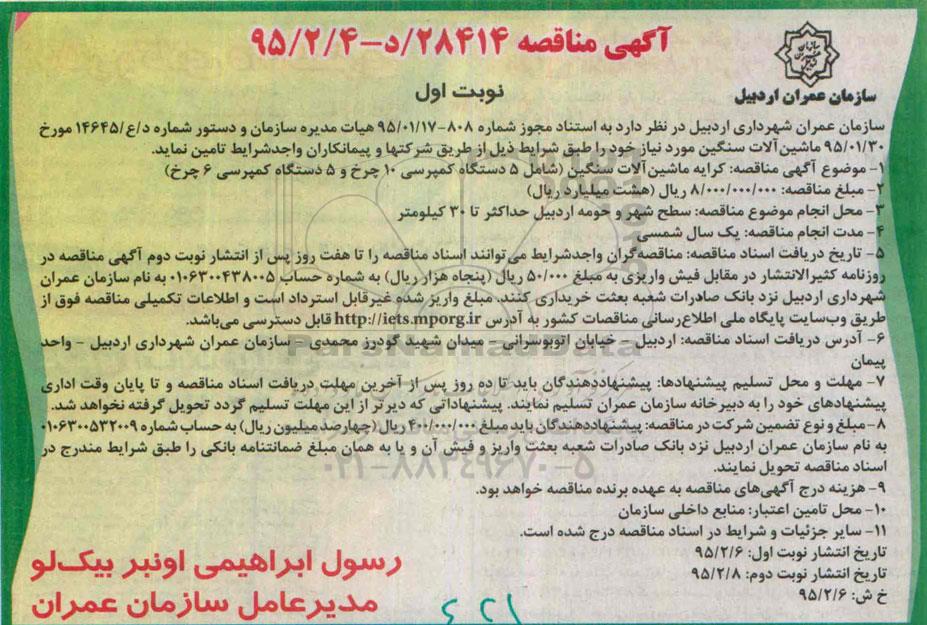 آگهی مناقصه ۲۸۴۱۴/د-۹۵/۲/۴
سازمان عمران اردبیل
نوبت اول
سازمان عمران شهرداری اردبیل در نظر دارد به استناد مجوز شماره ۸۰۸-۹۵/۰۱/۱۷ هیات مدیره سازمان و دستور شماره د/ع/۱۴۶۴۵ مورخ
۹۵/۰۱/۳۰ ماشین‌آلات سنگین مورد نیاز خود را طبق شرایط ذیل از طریق شرکتها و پیمانکاران واجدشرایط تامین نماید.
۱- موضوع آگهی مناقصه: کرایه ماشین‌آلات سنگین (شامل ۵ دستگاه کمپرسی ۱۰ چرخ و ۵ دستگاه کمپرسی ۶ چرخ)
۲- مبلغ مناقصه: ۸/۰۰۰/۰۰۰/۰۰۰ ریال (هشت میلیارد ریال)
۳- محل انجام موضوع مناقصه: سطح شهر و حومه اردبیل حداکثر تا ۳۰ کیلومتر
۴- مدت انجام مناقصه: یک سال شمسی
۵- تاریخ دریافت اسناد مناقصه: مناقصه‌گران واجدشرایط می‌توانند اسناد مناقصه را تا هفت روز پس از انتشار نوبت دوم آگهی مناقصه در
روزنامه کثیرالانتشار در مقابل فیش واریزی به مبلغ ۵۰/۰۰۰ ریال (پنجاه هزار ریال) به شماره حساب ۰۱۰۶۳۰۰۴۳۸۰۰۵ به نام سازمان عمران
شهرداری اردبیل نزد بانک صادرات شعبه بعثت خریداری کنند. مبلغ واریز شده غیرقابل استرداد است و اطلاعات تکمیلی مناقصه فوق از
طریق وب‌سایت پایگاه ملی اطلاع‌رسانی مناقصات کشور به آدرس http://iets.mporg.ir قابل دسترسی می‌باشد.
۶- آدرس دریافت اسناد مناقصه: اردبیل - خیابان اتوبوسرانی - میدان شهید گودرز محمدی - سازمان عمران شهرداری اردبیل - واحد
پیمان
۷- مهلت و محل تسلیم پیشنهادها: پیشنهاددهندگان باید تا ده روز پس از آخرین مهلت دریافت اسناد مناقصه و تا پایان وقت اداری
پیشنهادهای خود را به دبیرخانه سازمان عمران تسلیم نمایند. پیشنهاداتی که دیرتر از این مهلت تسلیم گردد تحویل گرفته نخواهد شد.
۸- مبلغ و نوع تضمین شرکت در مناقصه: پیشنهاددهندگان باید مبلغ ۴۰۰/۰۰۰/۰۰۰ ریال (چهارصد میلیون ریال) به حساب شماره ۰۱۰۶۳۰۰۵۳۲۰۰۹
به نام سازمان عمران اردبیل نزد بانک صادرات شعبه بعثت واریز و فیش آن و یا به همان مبلغ ضمانتنامه بانکی را طبق شرایط مندرج در
اسناد مناقصه تحویل نمایند.
۹- هزینه درج آگهی‌های مناقصه به عهده برنده مناقصه خواهد بود.
۱۰- محل تامین اعتبار: منابع داخلی سازمان
۱۱- سایر جزئیات و شرایط در اسناد مناقصه درج شده است.
تاریخ انتشار نوبت اول: ۹۵/۲/۶
تاریخ انتشار نوبت دوم: ۹۵/۲/۸
خ ش: ۹۵/۲/۶
رسول ابراهیمی اونبر بیک‌لو
مدیرعامل سازمان عمران
ParsNamadData
۰۲۱-۸۸۳۴۹۶۷۰-۵